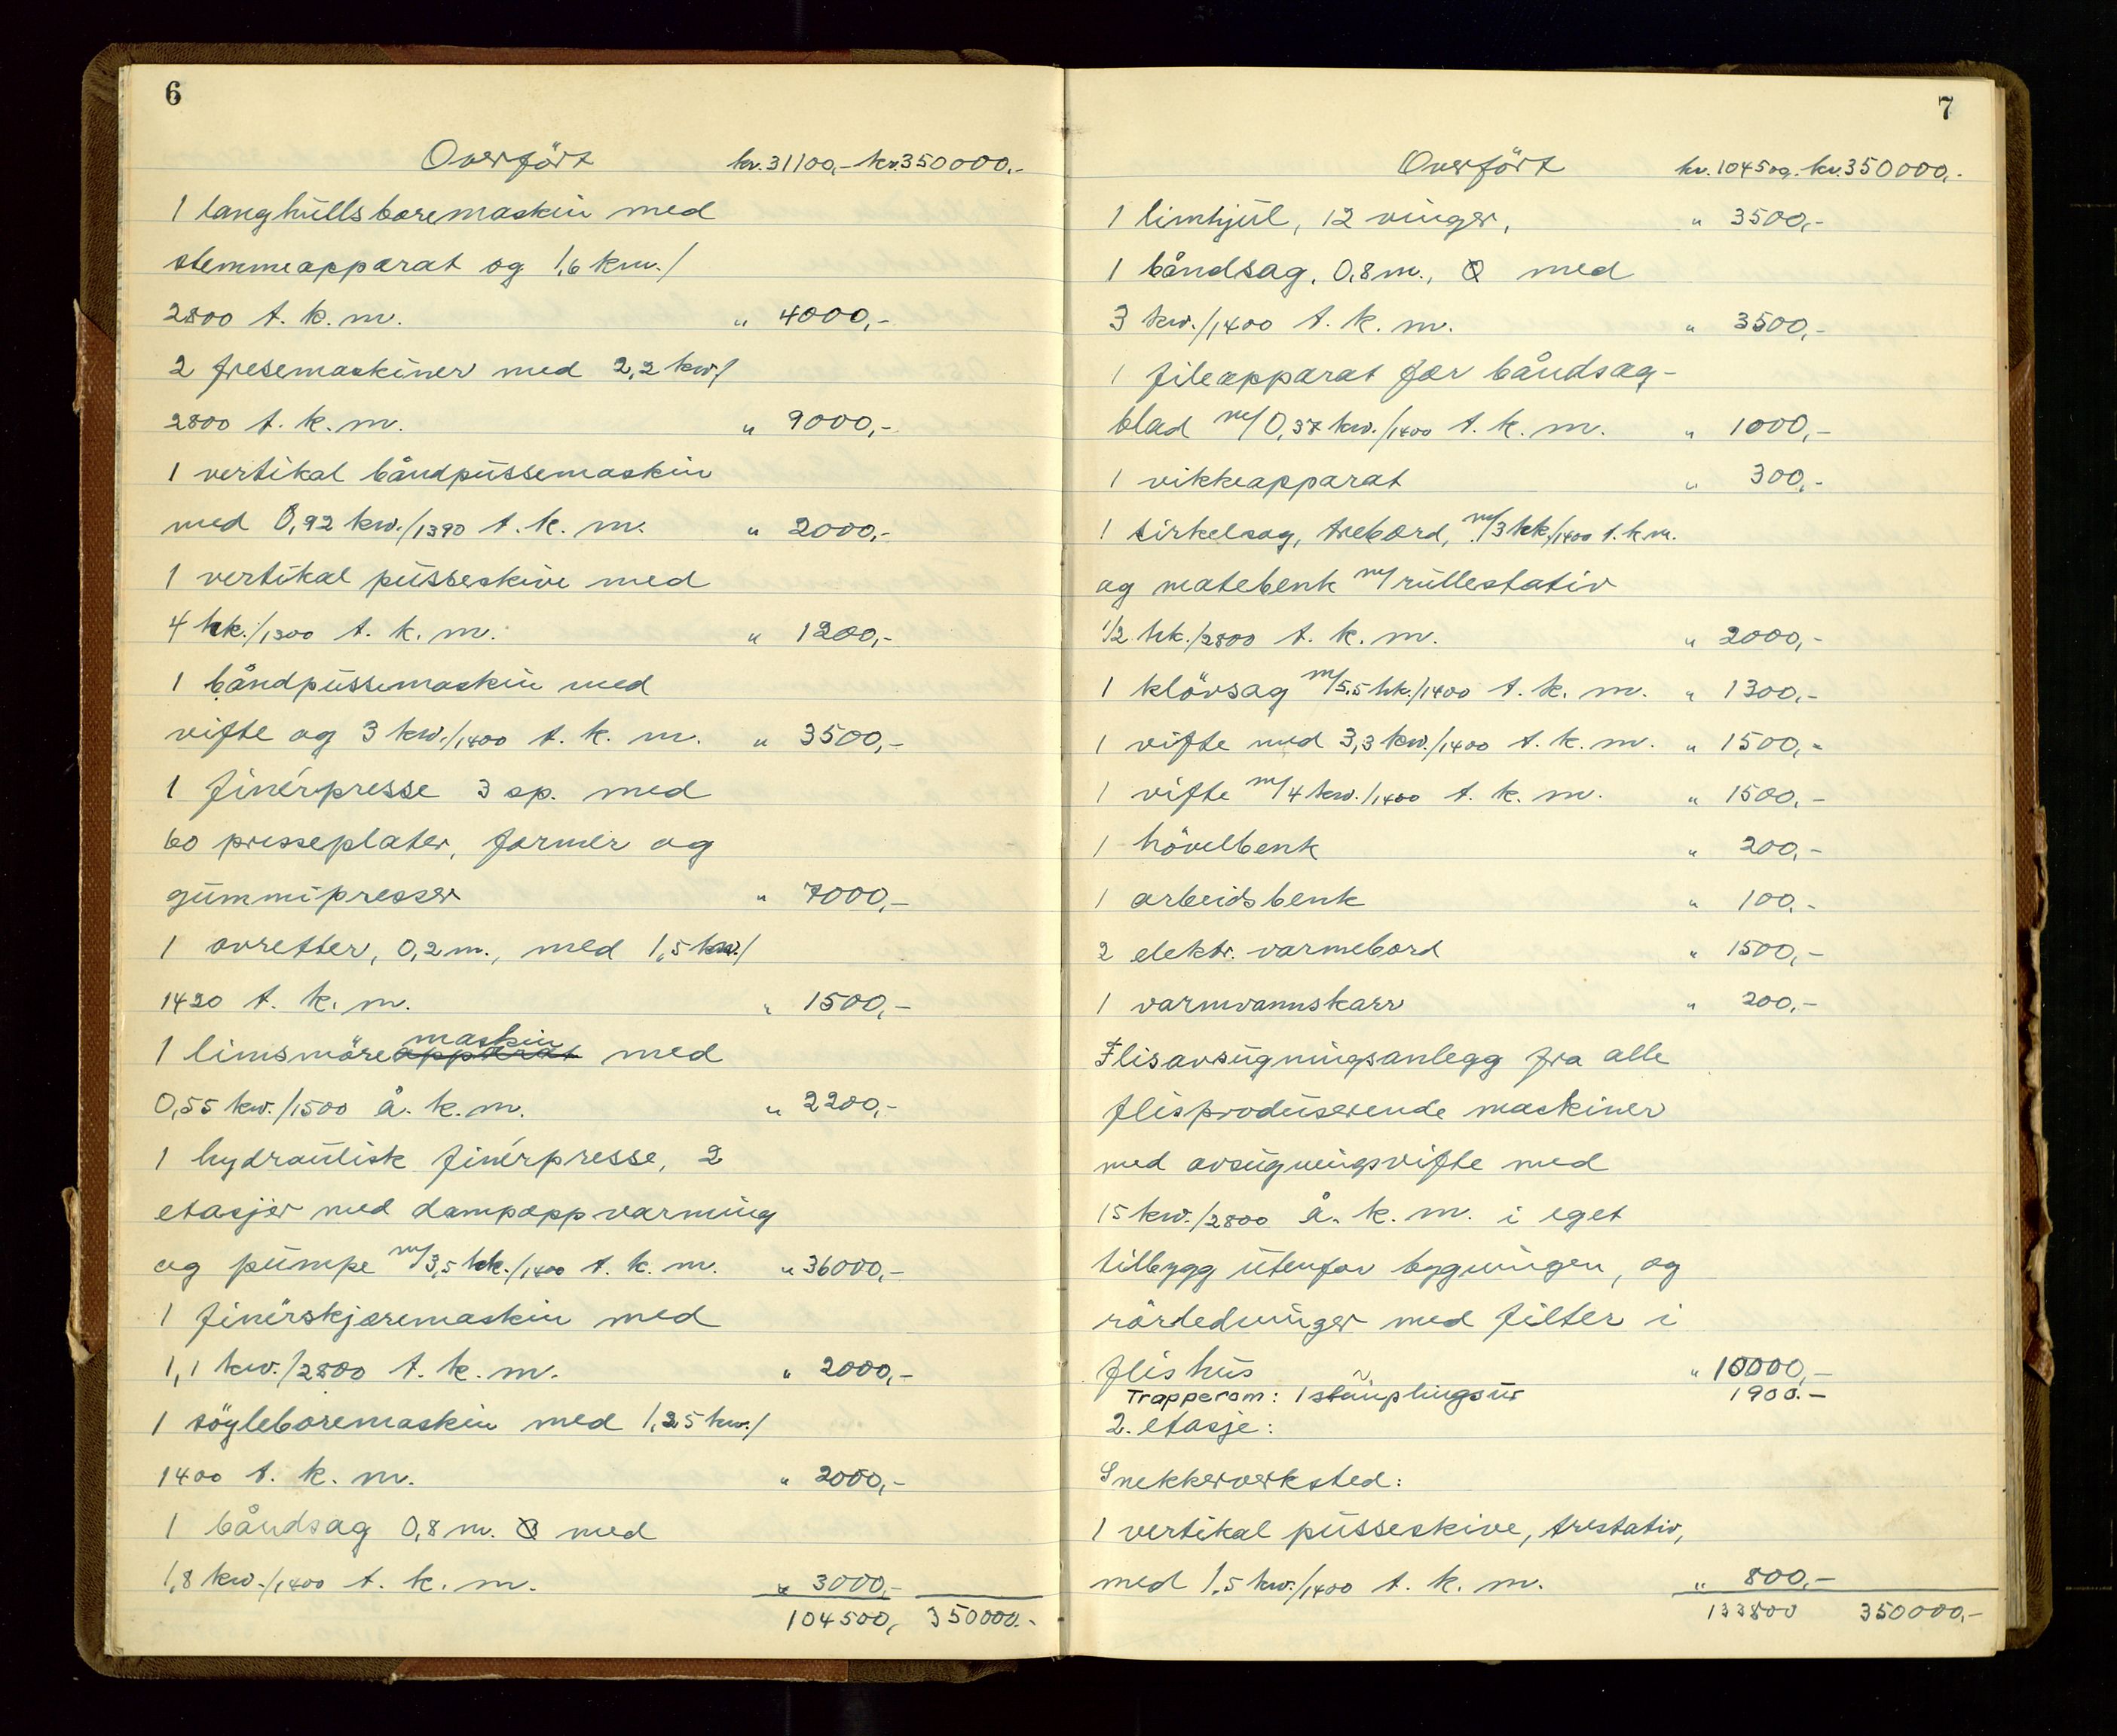 6
Overført kr. 31100,- kr. 350000.-
1 langhullsboremaskin med
stemmeapparat og 1,6 kw./
2800 t. k. m. " 4000,-
2 fresemaskiner med 2,2 kw/
2800 t. k. m. " 9000,-
1 vertikal båndpussemaskin
med 0,92 kw./1390 t. k. m. " 2000,-
1 vertikal pusseskive med
4 hk./1300 t. k. m. " 1200,-
1 båndpussemaskin med
vifte og 3 kw./1400 t. k. m. " 3500,-
1 finérpresse 3 sp. med
60 presseplater, former og
gummipresser " 7000,-
1 avretter, 0,2 m., med 1,5 kw./
1420 t. k. m. " 1500,-
1 limsmöreapparat maskin med
0,55 kw./1500 å. k. m. " 2200,-
1 hydraulisk finérpresse, 2
etasjer med dampoppvarming
og pumpe m/3,5 hk./1400 t. k. m. " 36000,-
1 finérskjæremaskin med
1,1 kw./2800 t. k. m. " 2000,-
1 söyleboremaskin med 1,25 kw./
1400 t. k. m. " 2000,-
1 båndsag 0,8 m. Ø med
1,8 kw./1400 t. k. m. " 3000,-
104500, 350000.-
7
Overfört kr. 104500. kr. 350000,-
1 limhjul, 12 vinger, " 3500,-
1 båndsag, 0,8 m., Ø med
3 kw./1400 t. k. m. " 3500,-
1 fileapparat for båndsag-
blad m/0,37 kw./1400 t. k. m. " 1000,-
1 vikkeapparat " 300,-
1 sirkelsag, trebord, m/3 hk./1400 t. k. m.
og matebenk m/rullestativ
1/2 hk./2800 t. k. m. " 2000,-
1 klövsag m/5,5 hk./1400 t. k. m. " 1300,-
1 vifte med 3,3 kw./1400 t. k. m. " 1500,-
1 vifte m/4 kw./1400 t. k. m. " 1500,-
1 hövelbenk " 200,-
1 arbeidsbenk " 100,-
2 elektr. varmebord " 1500,-
1 varmvannskarr " 200,-
Flisavsugningsanlegg fra alle
flisproduserende maskiner
med avsugningsvifte med
15 kw./2800 å. k. m. i eget
tilbygg utenfor bygningen, og
rörledninger med filter i
flishus " 10000,-
Trapperom: 1 stemplingsur 1900.-
2. etasje:
Snekkerverksted:
1 vertikal pusseskive, trestativ,
med 1,5 kw./1400 t. k. m. " 800,-
133800 350000,-